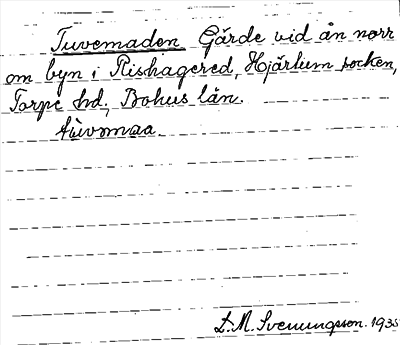 Tuvemaden Gärde vid ån norr
om byn i Rishagered, Hjärtum socken,
Torpe hd, Bohus län.
tùvəmaa.
D.M. Svenungsson. 1935